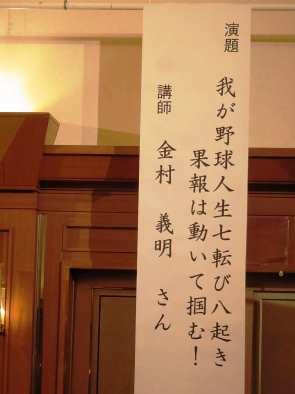 演題 我が野球人生七転び八起き
果報は動いて掴む！
講師 金村 義明 さん